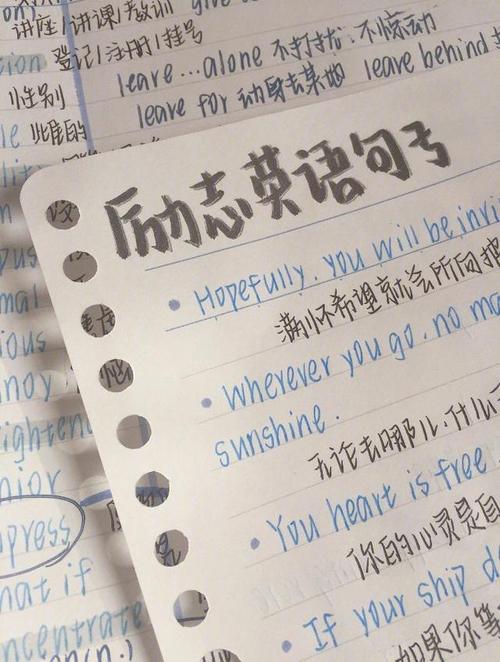 讲座/讲课/教训 give
登记/注册/挂号
leave...alone 不打扰;不惊动
性别
leave for 动身去某地 leave behind
雄的
励志英语句子
Hopefully, you will be invi
满怀希望就会所向披
Wherever you go, no ma
sunshine.
无论去哪儿,什么天
You heart is free
你的心灵是自
If your ship d
如果你等
mal
ious
noy
ighten
nior
press
hat if
ncentrate